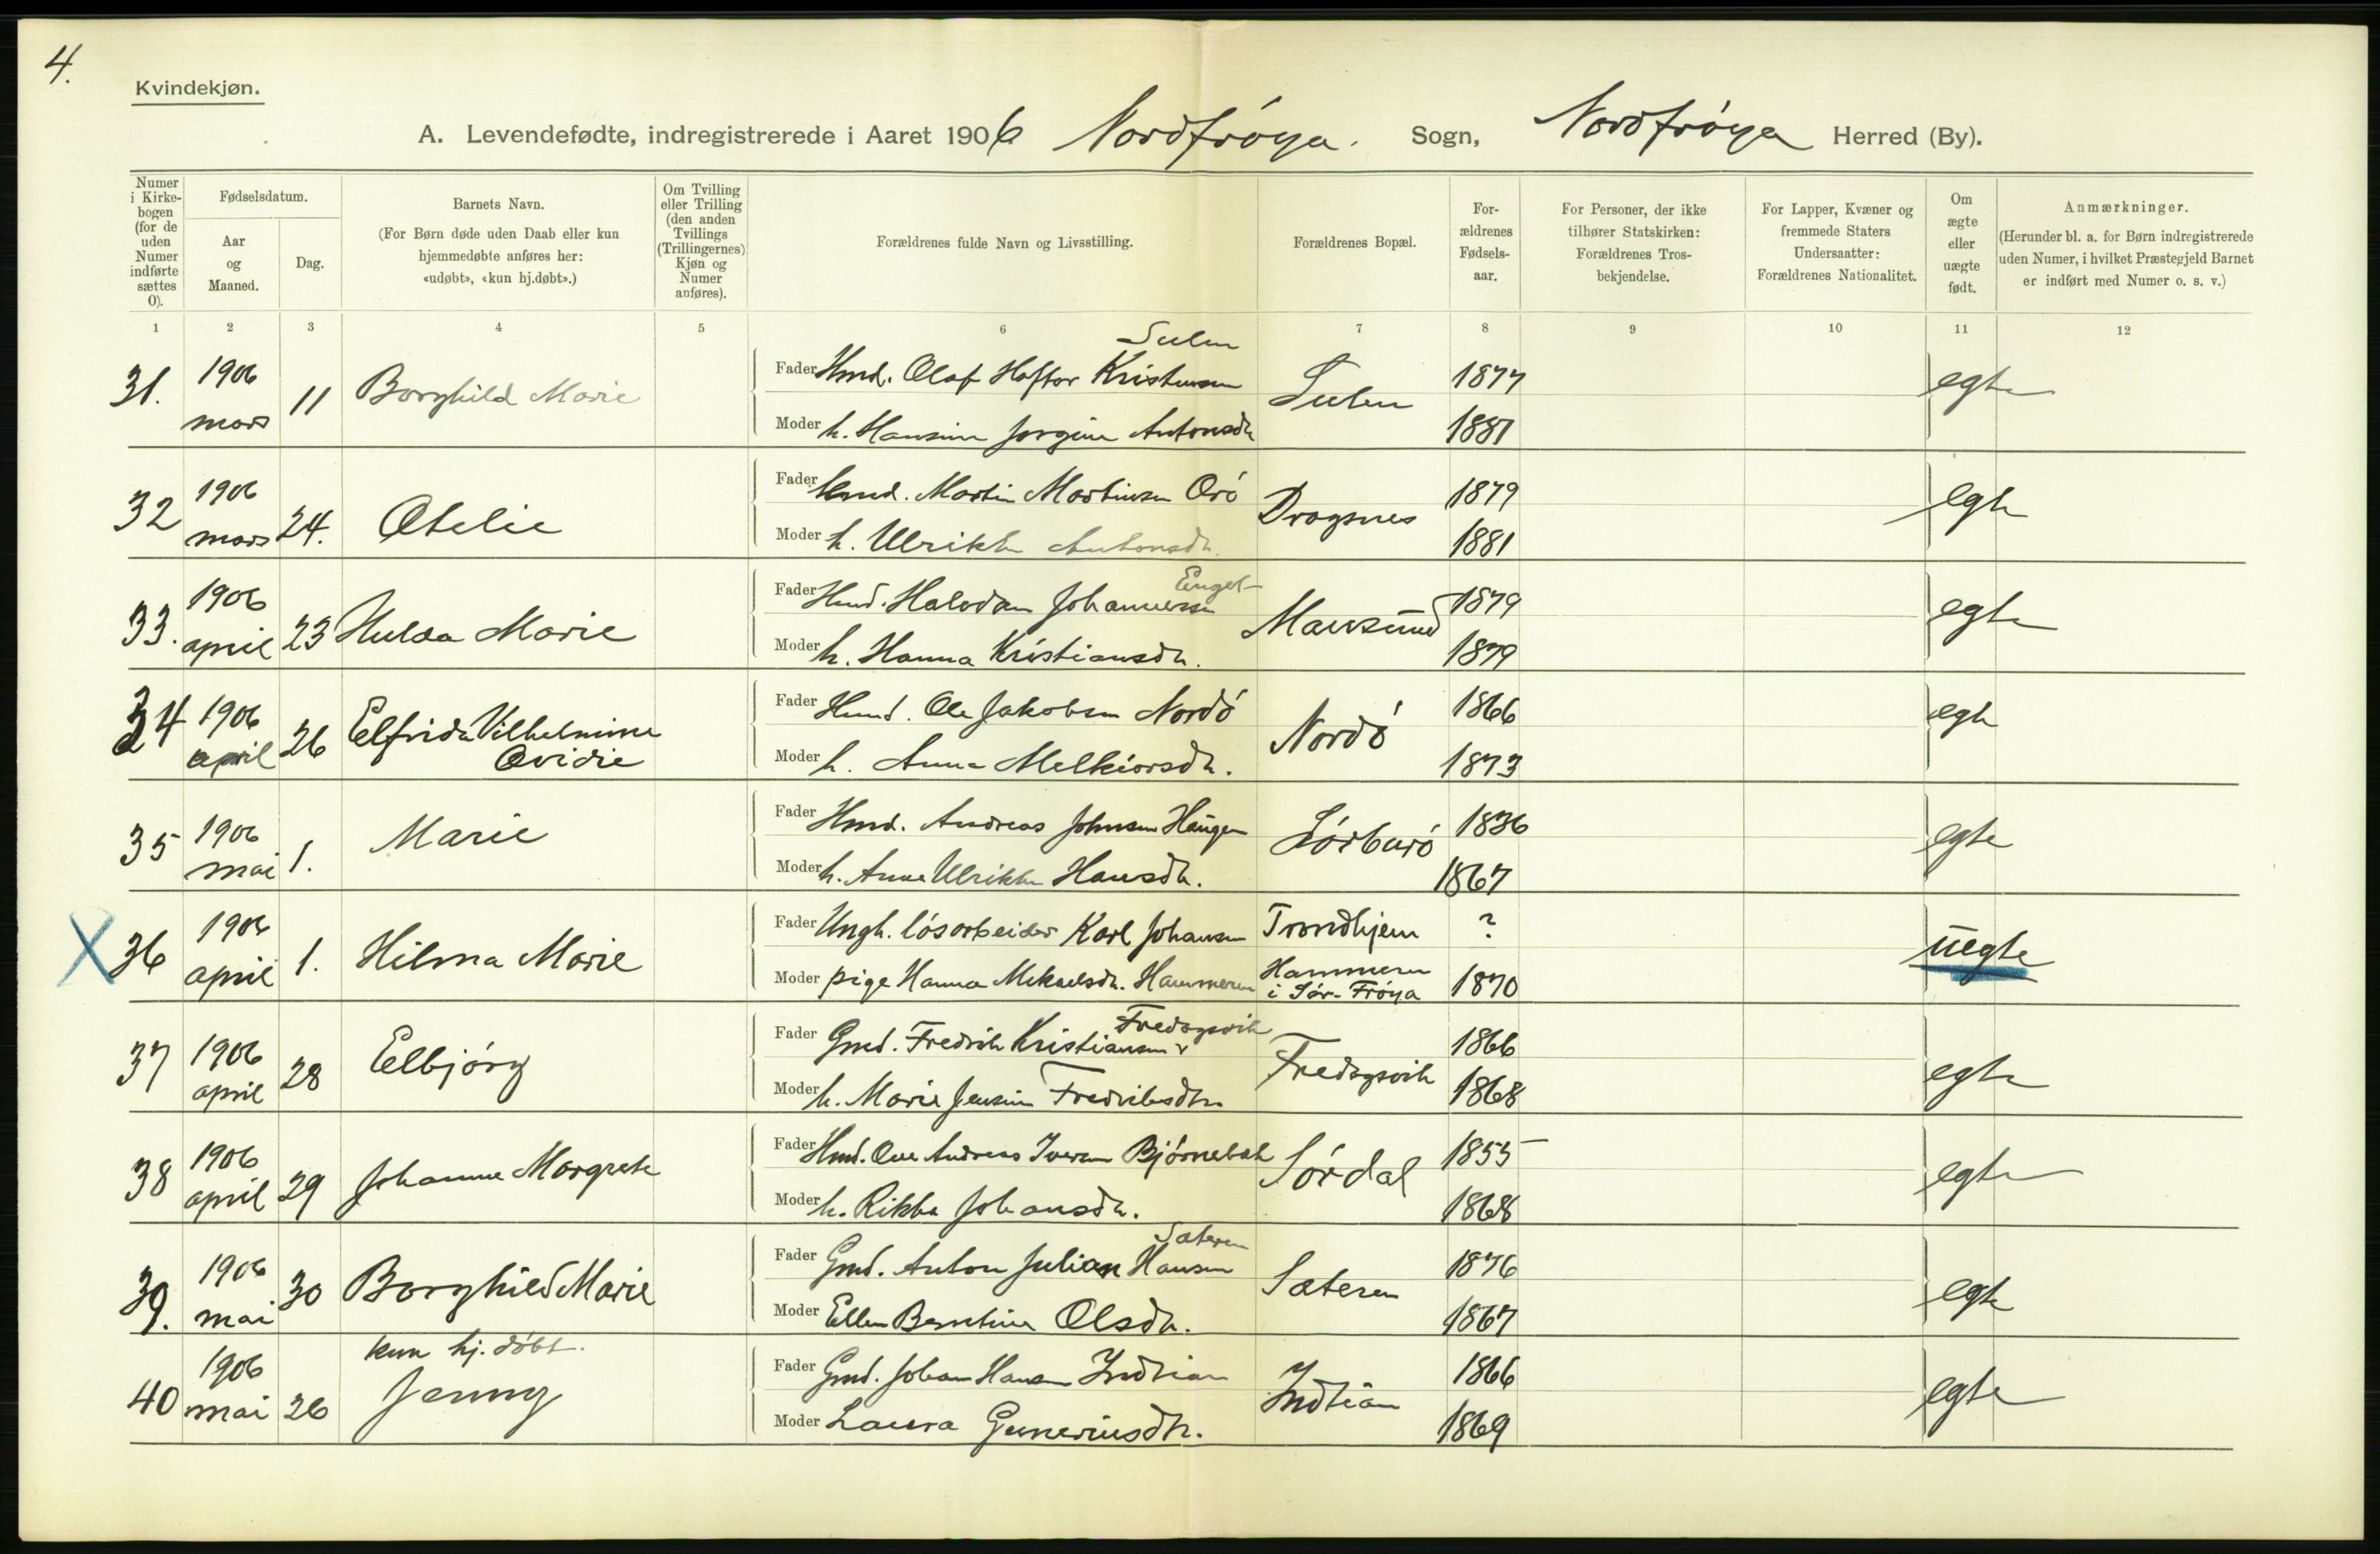 4.
Kvindekjøn.
A. Levendefødte, indregistrerede i Aaret 1906 Nordfröya. Sogn, Nordfröya Herred (By).
Numer i Kirkebogen (for de uden Numer indførte sættes 0).
Fødselsdatum.
Aar og Maaned.
Dag.
Barnets Navn.
(For Børn døde uden Daab eller kun hjemmedøbte anføres her: «udøbt», «kun hj.døbt».)
Om Tvilling eller Trilling (den anden Tvillings (Trillingernes) Kjøn og Numer anføres).
Forældrenes fulde Navn og Livsstilling.
Forældrenes Bopæl.
For-ældrenes Fødsels-aar.
For Personer, der ikke tilhører Statskirken: Forældrenes Tros-bekjendelse.
For Lapper, Kvæner og fremmede Staters Undersaatter: Forældrenes Nationalitet.
Om ægte eller uægte født.
Anmærkninger.
(Herunder bl. a. for Børn indregistrerede uden Numer, i hvilket Præstegjeld Barnet er indført med Numer o. s. v.)
1 2 3 4 5 6 7 8 9 10 11 12
31. 1906 mars 11 Borghild Marie
Fader Hmd. Olaf Haftor Kristensen Sulen
Moder h. Hansine Jorgine Antonsdtr
Sulen 1877 1881 egte
32 1906 mars 24. Otelie
Fader Hmd. Martin Martinsen Orö
Moder h. Ulrikke Antonsdtr.
Dragsnes 1879 1881 egte
33. 1906 april 23 Hulda Marie
Fader Hmd. Halvdan Johannessen Enget
Moder h. Hanna Kristiansdtr.
Mausund 1879 1879 egte
34 1906 april 26 Elfrida Vilhelmine Ovidie
Fader Hmd. Ole Jakobsen Nordö
Moder h. Anna Melkiorsdtr.
Nordö 1866 1873 egte
35 1906 mai 1. Marie
Fader Hmd. Andreas Johnsen Haugen
Moder h. Anne Ulrikke Hansdtr.
Sörburö 1836 1867 egte
X 36 1906 april 1. Hilma Marie
Fader Ungk. lösarbeider Karl Johansen Trondhjem ?
Moder pige Hanna Mikaelsdtr. Hammeren Hammeren i Sör-Fröya 1870
uegte
37 1906 april 28 Eelbjörg
Fader Gmd. Fredrik Kristiansen Fredagsvik
Moder h. Marie Jensine Fredriksdtr
Fredagsvik 1866 1868 egte
38 1906 april 29 Johanne Margrete
Fader Hmd. Ove Andreas Iversen
Moder h. Rikka Johansdtr.
Sördal 1855 1868 egte
39. 1906 mai 30 Borghild Marie
Fader Gmd. Anton Julian Hansen Sæteren
Moder Ellen Berntine Olsdtr.
Sæteren 1876 1867 egte
40 1906 mai 26 kun hj. döbt. Jenny
Fader Gmd. Johan Hansen Indtian
Moder Laura Guneriusdtr.
Indtian 1866 1869 egte